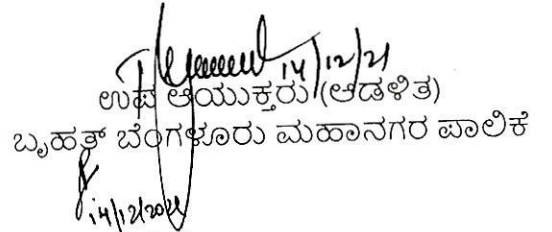 14/12/21
ಉಪ ಆಯುಕ್ತರು (ಆಡಳಿತ)
ಬೃಹತ್ ಬೆಂಗಳೂರು ಮಹಾನಗರ ಪಾಲಿಕೆ
14/12/2021